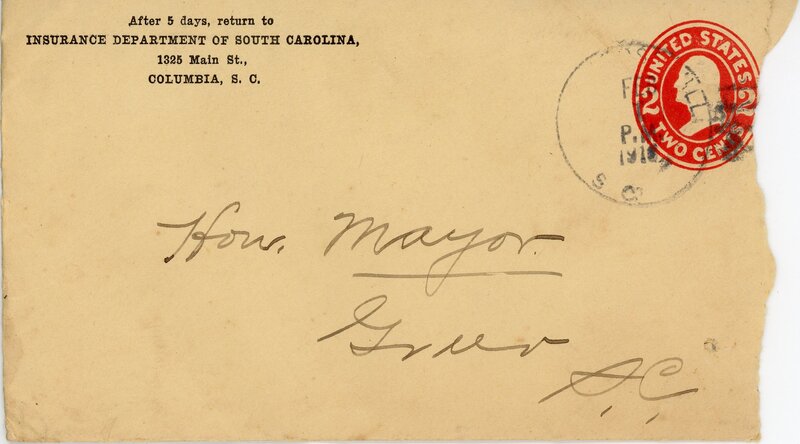 After 5 days, return to
INSURANCE DEPARTMENT OF SOUTH CAROLINA,
1325 Main St.,
COLUMBIA, S. C.
UNITED STATES
2 2
TWO CENTS
S C
Hon. Mayor.
Greer
S.C.